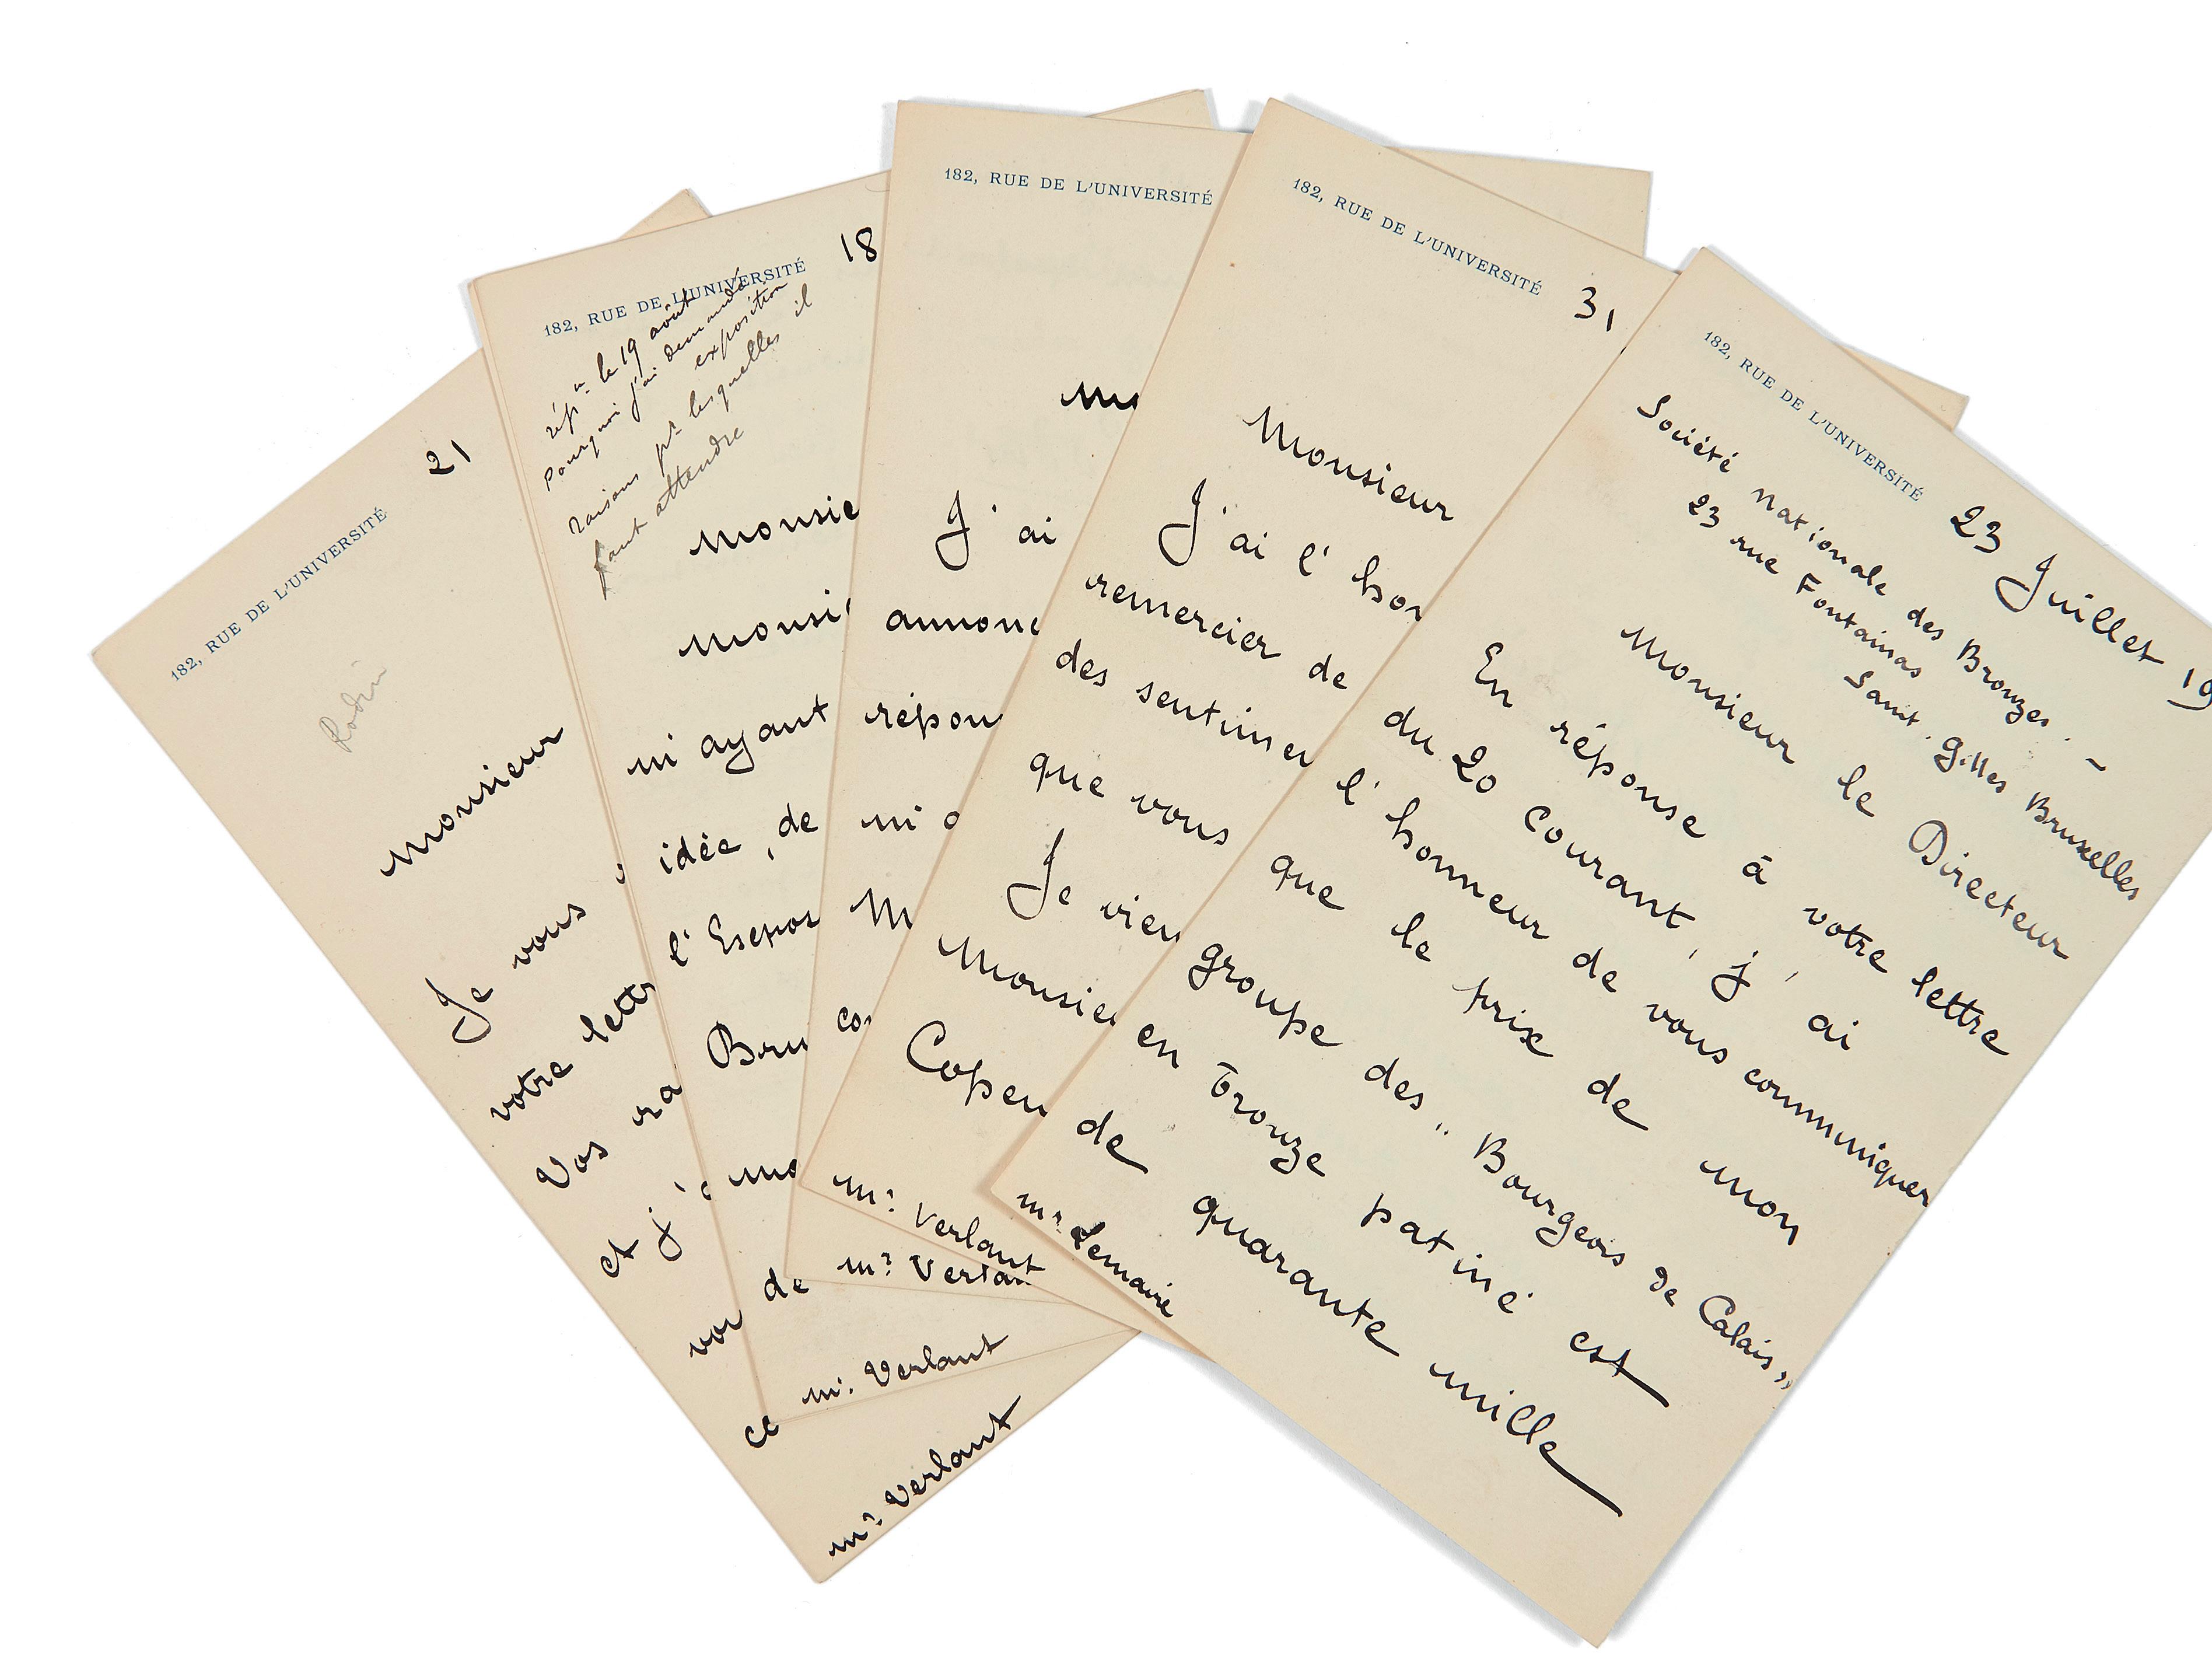 182, RUE DE L'UNIVERSITÉ
21
Rodin
Monsieur
Je vous
votre lettr
Vos ra
et j'
vou
ce
mr. Verlant
182, RUE DE L'UNIVERSITÉ
18
répse le 19 août
pourquoi j'ai demandé
exposition
raisons pr lesquelles il
faut attendre
Monsie
Monsi
m'ayant
idée, de
l'Expos
Bru
mo
de
mr. Verlant
182, RUE DE L'UNIVERSITÉ
Mo
J'ai
annonc
répon
m'a
M
co
mr. Verlan
182, RUE DE L'UNIVERSITÉ
31
Monsieur
J'ai l'hon
remercier de
des sentimen
que vous
Je vien
Monsieu
Copen
mr. Verlant
182, RUE DE L'UNIVERSITÉ
23 Juillet 19
Société Nationale des Bronzes. –
23 rue Fontainas
Saint. Gilles Bruxelles
Monsieur le Directeur
En réponse à votre lettre
du 20 courant, j'ai
l'honneur de vous communiquer
que le prix de mon
groupe des „Bourgeois de Calais„
en bronze patiné est
de quarante mille
mr. Lemaire